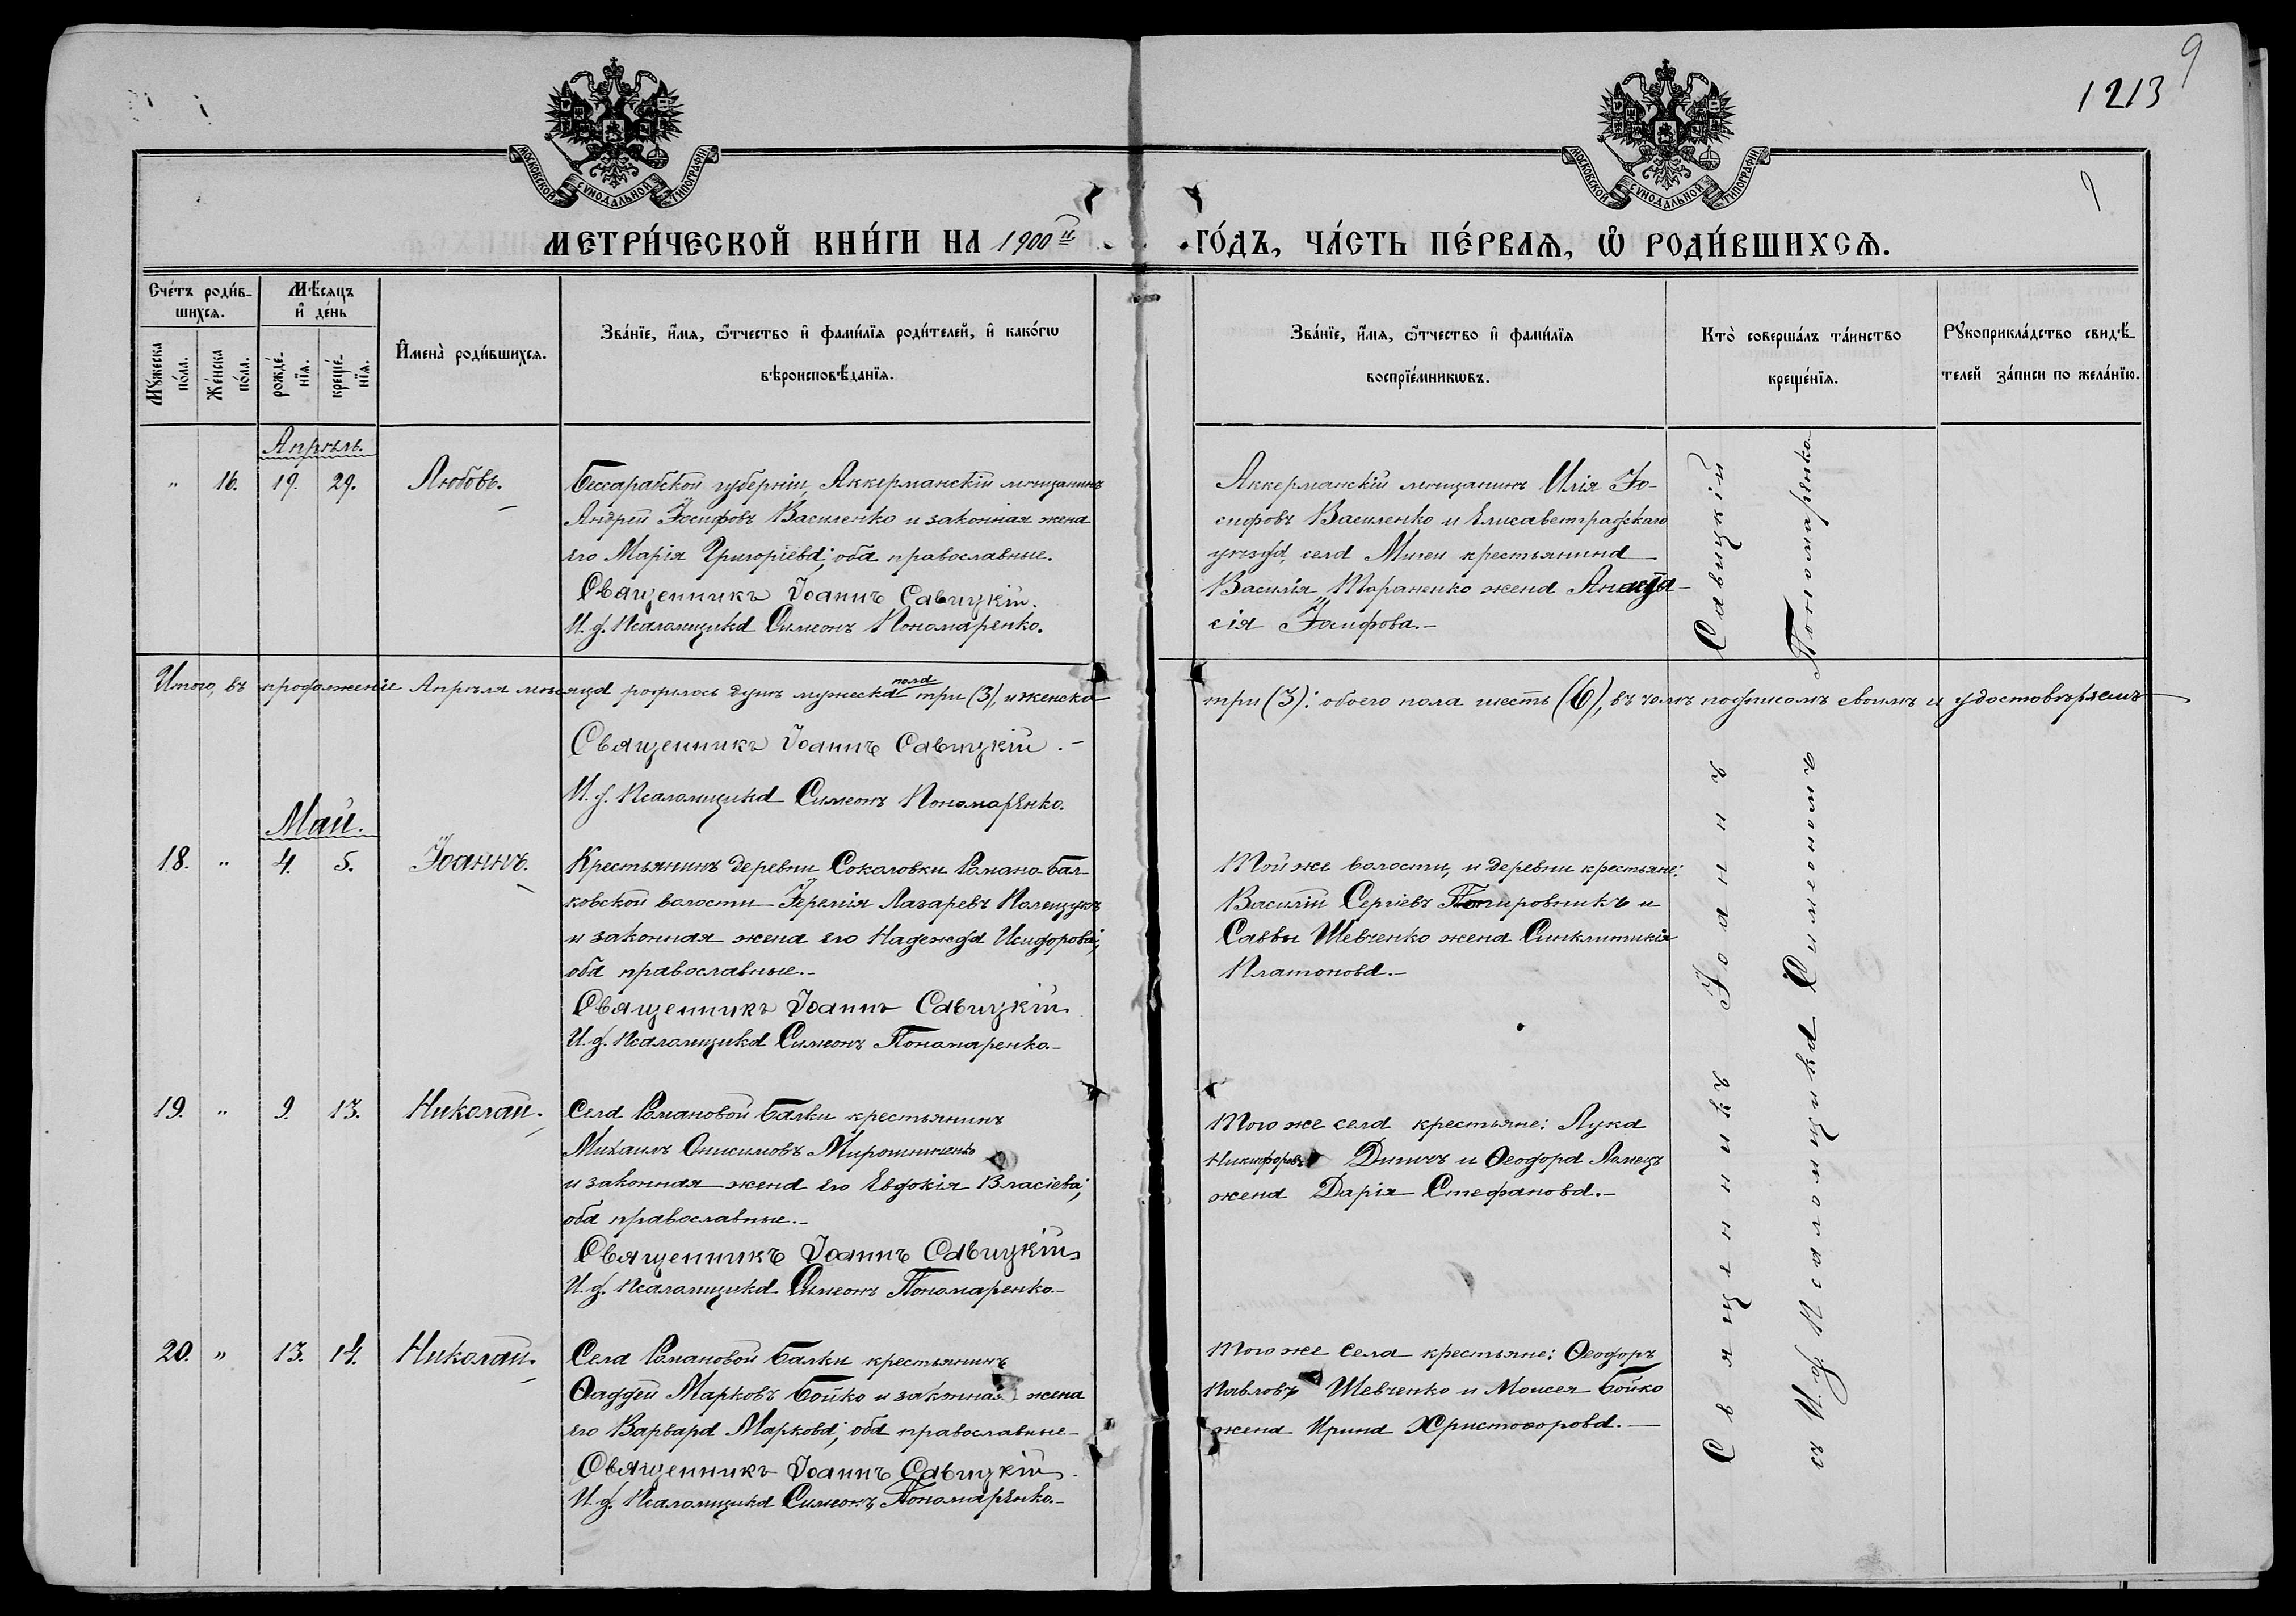 9
1213
МОСКОВСКОЙ СѴНОДАЛЬНОЙ ТИПОГРАФІИ
МОСКОВСКОЙ СѴНОДАЛЬНОЙ ТИПОГРАФІИ
МЕТРИ́ЧЕСКОЙ КНИ́ГИ НА 1900й
ГО́ДЪ, ЧА́СТЬ ПЕ́РВАѦ, Ѽ РОДИ́ВШИХСѦ.
Сче́тъ роди́в-
шихсѧ.
Мѣ́сѧцъ
и҆ де́нь
Мꙋ́жеска
по́ла.
Же́нска
по́ла.
рожде́-
нїѧ.
креще́-
нїѧ.
И҆мена̀ роди́вшихсѧ.
Зва́нїе, и҆́мѧ, ѻ҆́тчество и҆ фами́лїѧ роди́телей, и҆ како́гѡ
вѣроисповѣ́данїѧ.
Зва́нїе, и҆́мѧ, ѻ҆́тчество и҆ фами́лїѧ
воспрїе́мникѡвъ.
Кто̀ соверша́лъ та́инство
креще́нїѧ.
Рꙋкоприкла́дство свидѣ́-
телей за́писи по жела́нїю.
Апрѣль.
" 16. 19. 29. Любовь.
Бессарабской губерніи, Аккерманскій мѣщанинъ
Андрей Іосифовъ Василенко и законная жена
его Марія Григоріева; оба православные.
Священникъ Іоаннъ Савицкій.
И. д. Псаломщика Симеонъ Пономаренко.
Аккерманскій мѣщанинъ Илія Іо-
сифовъ Василенко и Елисаветградскаго
уѣзда, села Мигеи крестьянина
Василія Тараненко жена Анаста-
сія Іосифова.-
Итого, въ продолженіе Апрѣля мѣсяца родилось душъ мужеска пола три (3), и женска
три (3): обоего пола шесть (6), въ чемъ подписомъ своимъ и удостовѣряемъ
Священникъ Іоаннъ Савицкій.-
И. д. Псаломщика Симеонъ Пономаренко.
Май.
18. " 4. 5. Іоаннъ.
Крестьянинъ деревни Соколовки Романо-Бал-
ковской волости Іеремія Лазаревъ Полещукъ
и законная жена его Надежда Исидорова;
оба православные.-
Священникъ Іоаннъ Савицкій
И. д. Псаломщика Симеонъ Пономаренко.-
Той же волости, и деревни крестьяне:
Василій Сергіевъ и
Саввы Шевченко жена Синклитикія
Платонова.-
19. " 9. 13. Николай.
Села Романовой Балки крестьянинъ
Михаилъ Онисимовъ Мирошниченко
и законная жена его Евдокія Власіева;
оба православные.-
Священникъ Іоаннъ Савицкій
И. д. Псаломщика Симеонъ Пономаренко.-
Того же села крестьяне: Лука
Никифоровъ и Ѳеодора
жена Дарія Стефанова.-
20. " 13. 14. Николай.
Села Романовой Балки крестьянинъ
Ѳаддей Марковъ Бойко и законная жена
его Варвара Маркова; оба православные-
Священникъ Іоаннъ Савицкій.
И. д. Псаломщика Симеонъ Пономаренко.-
Того же села крестьяне: Ѳеодоръ
Павловъ Шевченко и Моисея Бойко
жена Ирина Христофорова.-
Священникъ Іоаннъ Савицкій
съ И. д. Псаломщика Симеономъ Пономаренко.